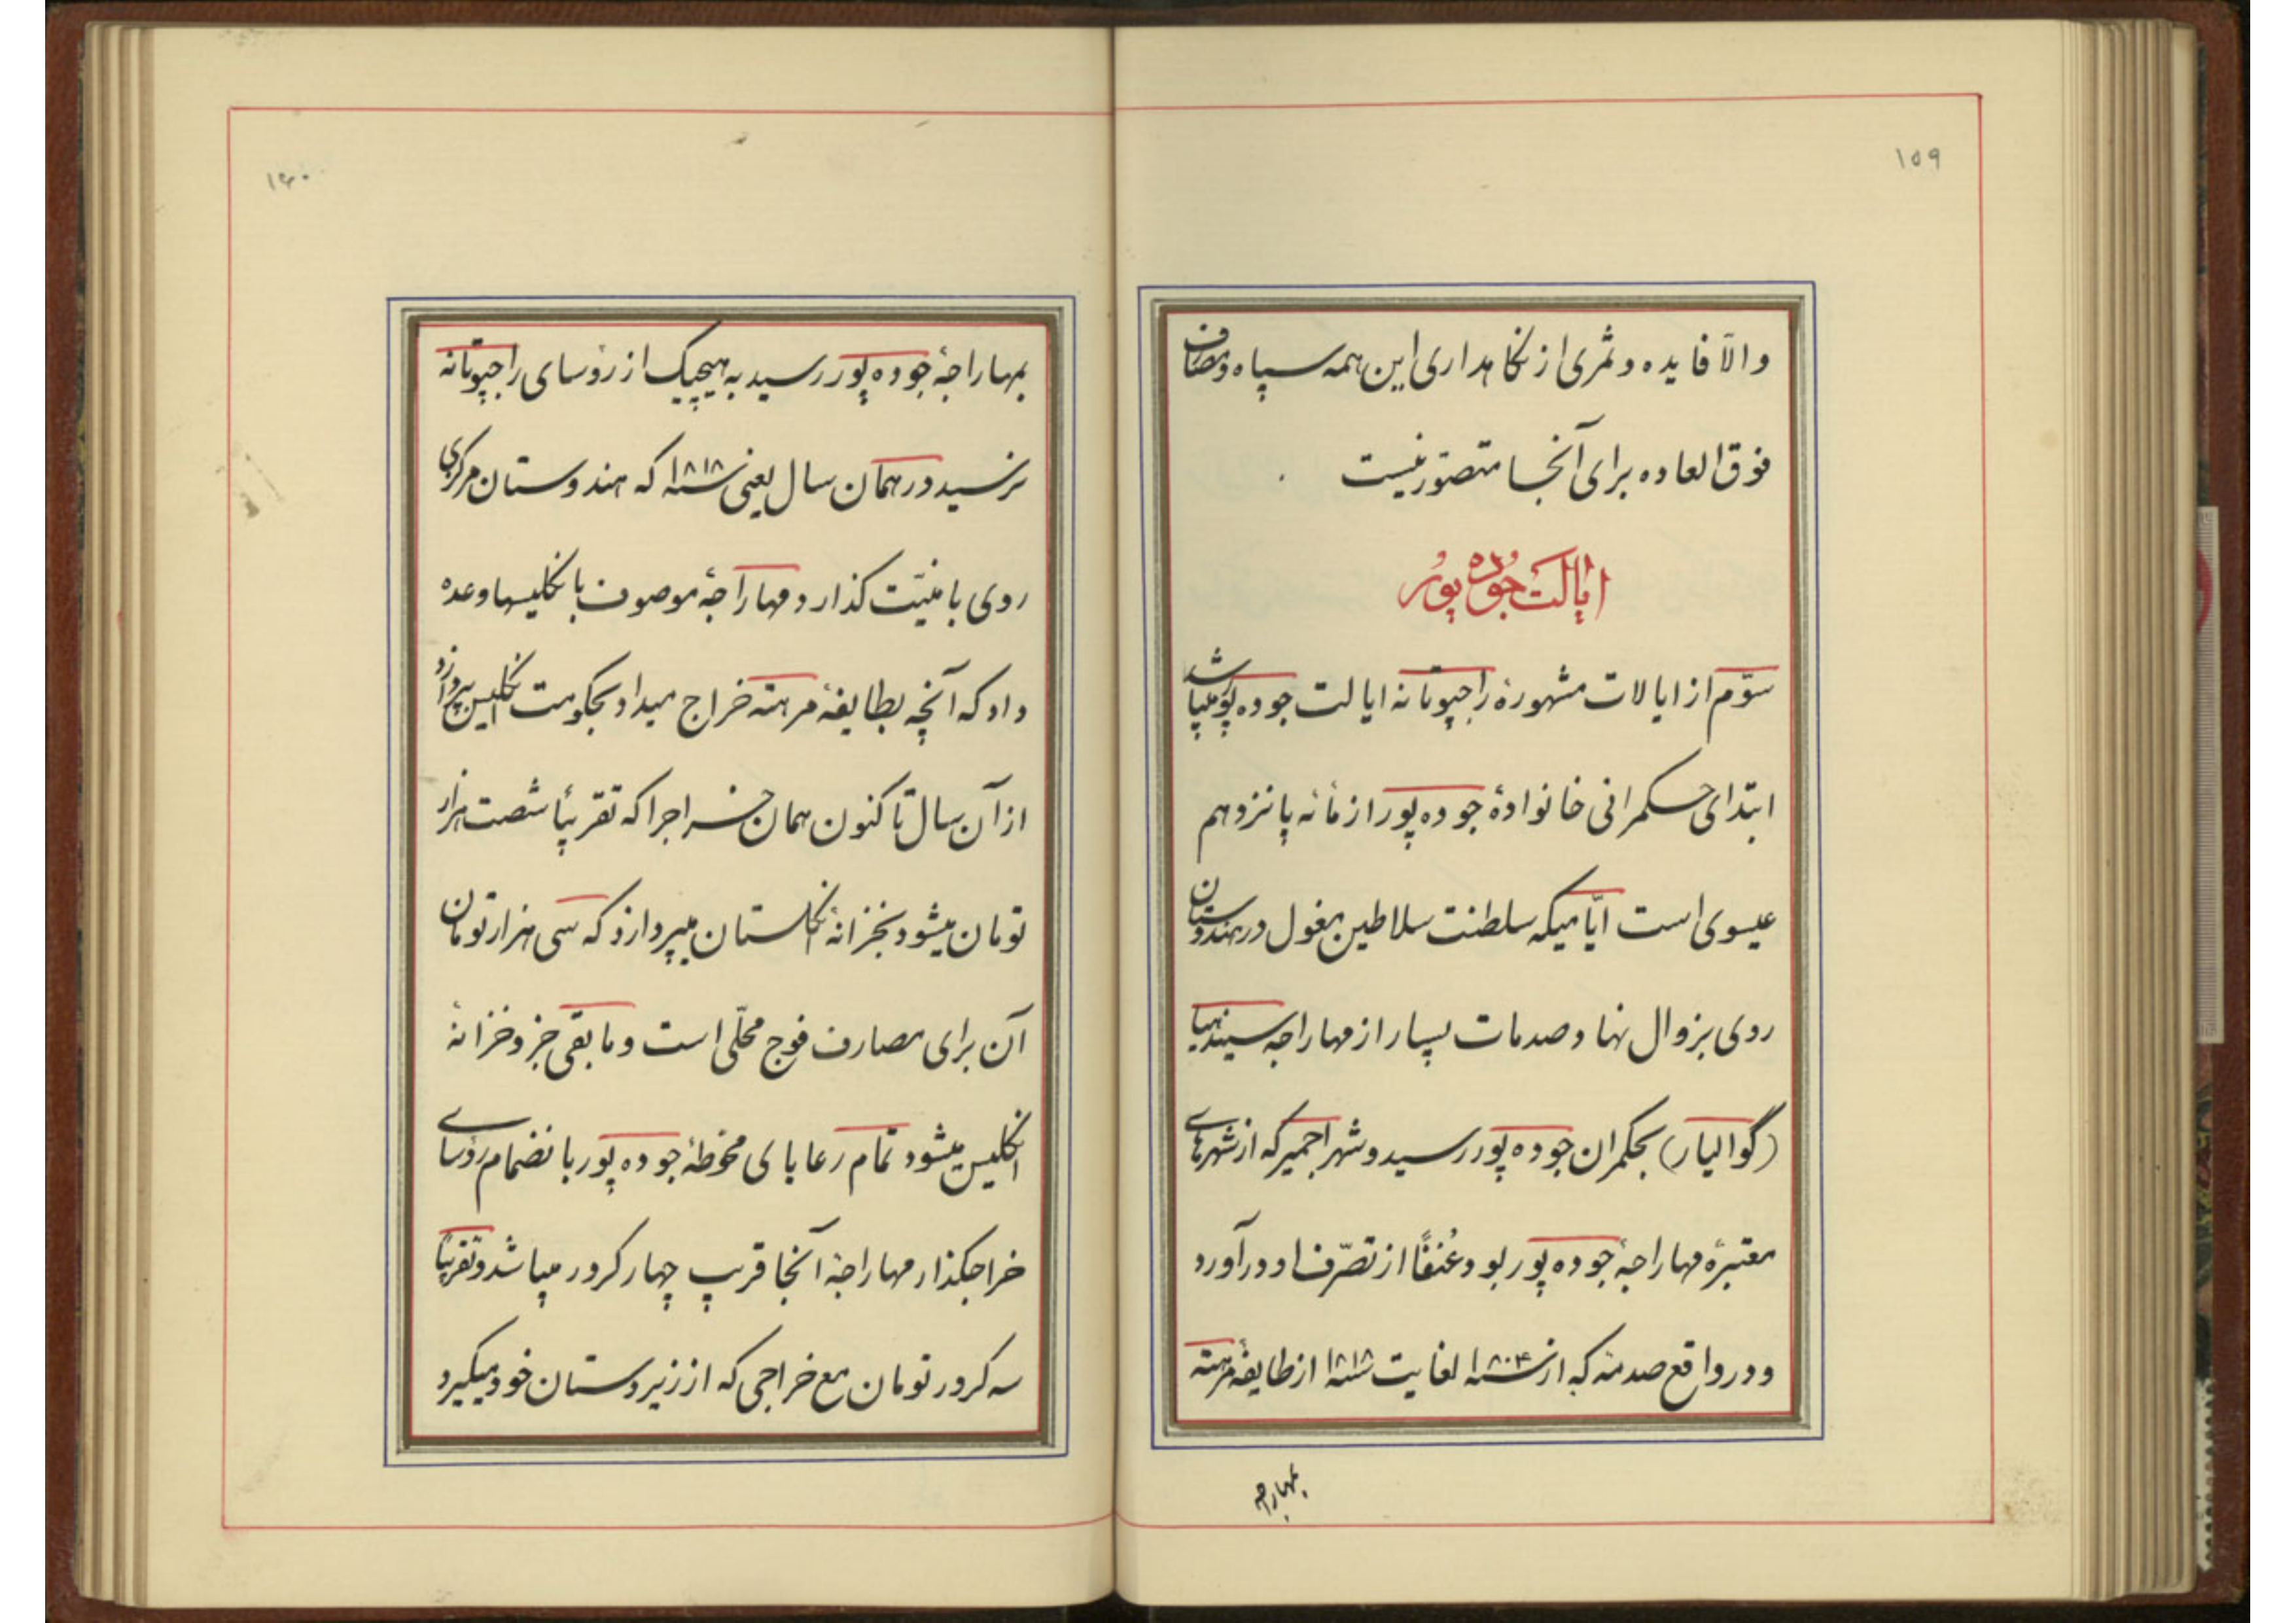 ۱۵۹
والّا فایده و ثمری از نگاهداری این همه سپاه و مصارف
فوق العاده برای آنجا متصوّر نیست
ایالت جوده پور
سوّم از ایالات مشهورهٔ راجپوتانه ایالت جوده پور میباشد
ابتدای حکمرانی خانوادهٔ جوده پور از مأنه پانزدهم
عیسوی است ایّامیکه سلطنت سلاطین مغول در هندوستان
روی بزوال نهاد صدمات بسیار از مهاراجه سیندهیا
(گوالیار) بحکمران جوده پور رسید و شهر اجمیر که از شهرهای
معتبرهٔ مهاراجهٔ جوده پور بود عُنفاً از تصرّف او درآورد
و در واقع صدمهٔ که از سنه ۱۸۰۴ لغایت سنه ۱۸۱۸ از طایفهٔ مرهته
بمهاراجه
۱۶۰
بمهاراجهٔ جوده پور رسید به هیچیک از رؤسای راجپوتانه
نرسید در همان سال یعنی سنه ۱۸۱۸ که هندوستان مرکزی
روی بامنیّت گذارد مهاراجهٔ موصوف بانگلیسها وعده
داد که آنچه بطایفهٔ مرهته خراج میداد بحکومت انگلیس بپردازد
از آن سال تا کنون همان خراجرا که تقریباً شصت هزار
تومان میشود بخزانهٔ انگلستان میپردازد که سی هزار تومان
آن برای مصارف فوج محلّی است و مابقی جزو خزانهٔ
انگلیس میشود تمام رعایای محوطهٔ جوده پور بانضمام رؤسای
خراجگذار مهاراجهٔ آنجا قریب چهار کرور میباشد و تقریباً
سه کرور تومان مع خراجی که از زیردستان خود میگیرد